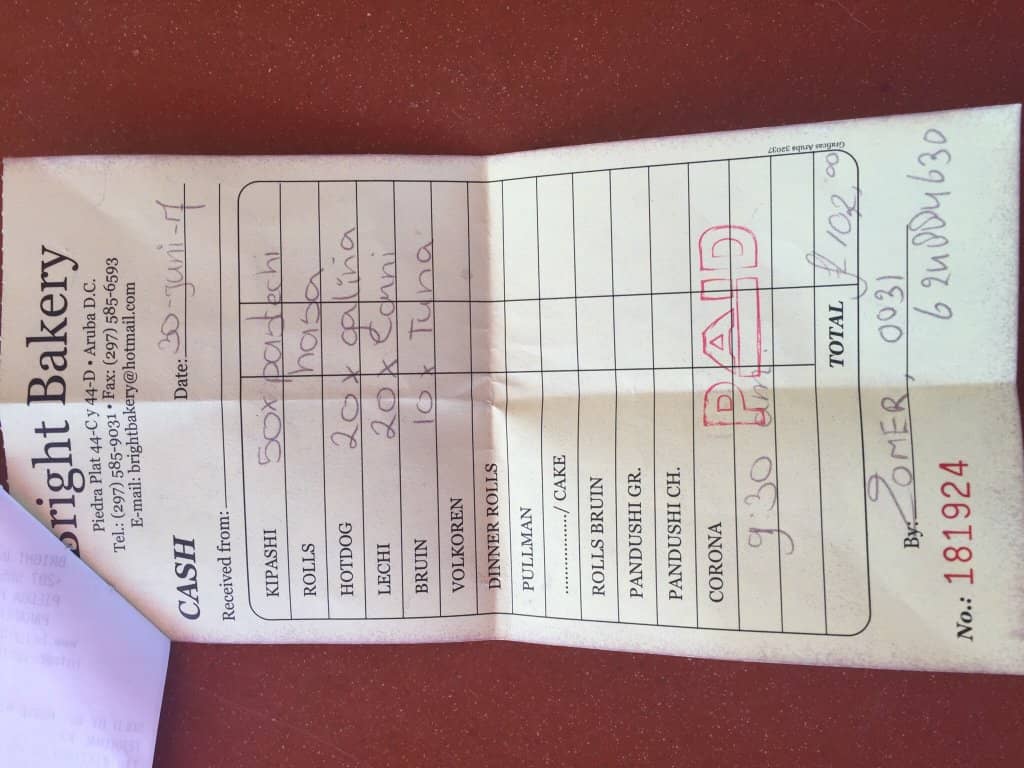 Bright Bakery
Piedra Plat 44-C y 44-D • Aruba D.C.
Tel.: (297) 585-9031 • Fax: (297) 585-6593
E-mail: brightbakery@hotmail.com
CASH Date: 30-juni-17
Received from:
KIPASHI 50x pastechi
ROLLS hasa
HOTDOG 20x galina
LECHI 20x Carni
BRUIN 10x Tuna
VOLKOREN
DINNER ROLLS
PULLMAN
................/ CAKE
ROLLS BRUIN
PANDUSHI GR.
PANDUSHI CH.
CORONA PAID
9:30 am
TOTAL ƒ 102,00
Graficas Aruba 32037
By: ZOMER, 0031
No.: 181924